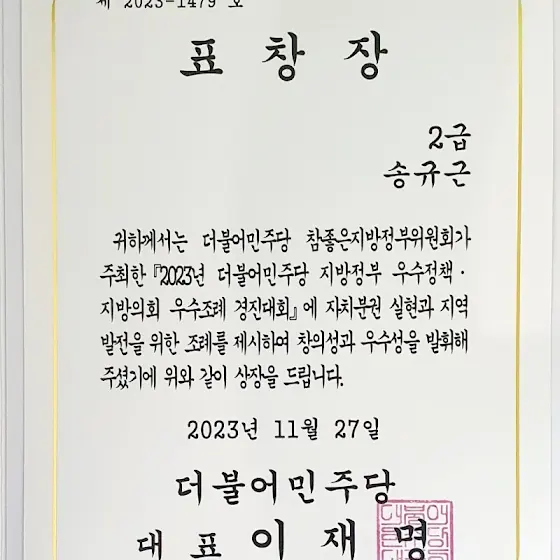 제 2023-1479 호
표 창 장
2급
송규근
귀하께서는 더불어민주당 참좋은지방정부위원회가
주최한 『2023년 더불어민주당 지방정부 우수정책·
지방의회 우수조례 경진대회』에 자치분권 실현과 지역
발전을 위한 조례를 제시하여 창의성과 우수성을 발휘해
주셨기에 위와 같이 상장을 드립니다.
2023년 11월 27일
더불어민주당
대 표 이 재 명